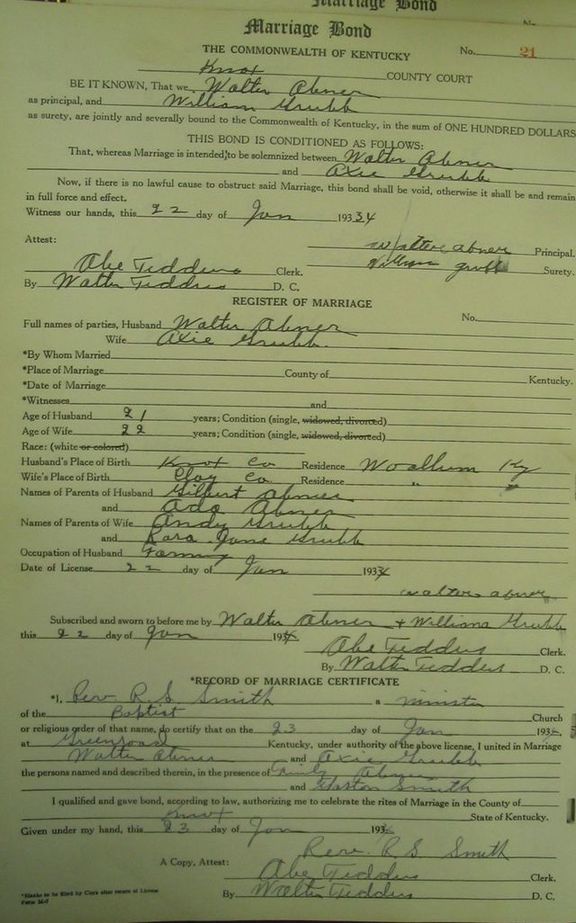 Marriage Bond
Marriage Bond
THE COMMONWEALTH OF KENTUCKY No. 21
Knox COUNTY COURT
BE IT KNOWN, That we Walter Abner
as principal, and William Grubb
as surety, are jointly and severally bound to the Commonwealth of Kentucky, in the sum of ONE HUNDRED DOLLARS
THIS BOND IS CONDITIONED AS FOLLOWS:
That, whereas Marriage is intended to be solemnized between Walter Abner
and Axie Grubb
Now, if there is no lawful cause to obstruct said Marriage, this bond shall be void, otherwise it shall be and remain
in full force and effect.
Witness our hands, this 22 day of Jan 193 34
Attest: Walter abner Principal.
William grubb Surety.
Abe Tedders Clerk.
By Walter Tedders D. C.
REGISTER OF MARRIAGE
No.
Full names of parties, Husband Walter Abner
Wife Axie Grubb.
*By Whom Married
*Place of Marriage County of Kentucky.
*Date of Marriage
*Witnesses and
Age of Husband 21 years; Condition (single, widowed, divorced)
Age of Wife 22 years; Condition (single, widowed, divorced)
Race: (white or colored)
Husband's Place of Birth Knox Co Residence Woollum Ky
Wife's Place of Birth Clay Co. Residence "
Names of Parents of Husband Gilbert Abner
and Ada Abner
Names of Parents of Wife Andy Grubb
and Jane Grubb
Occupation of Husband Farming
Date of License 22 day of Jan 1934
walter abner
Subscribed and sworn to before me by Walter Abner + William Grubb
this 22 day of Jan 193
Abe Tedders Clerk.
By Walter Tedders D. C.
*RECORD OF MARRIAGE CERTIFICATE
*I, Rev. R. S. Smith a minister
of the Baptist Church
or religious order of that name, do certify that on the 23 day of Jan 193
at Kentucky, under authority of the above license, I united in Marriage
Walter Abner and Axie Grubb
the persons named and described therein, in the presence of Abner
and Smith
I qualified and gave bond, according to law, authorizing me to celebrate the rites of Marriage in the County of
Knox State of Kentucky.
Given under my hand, this 23 day of Jan 193
Rev. R S Smith
A Copy, Attest: Abe Tedders Clerk.
By Walter Tedders D. C.
*Blanks to be filled by Clerk after return of License